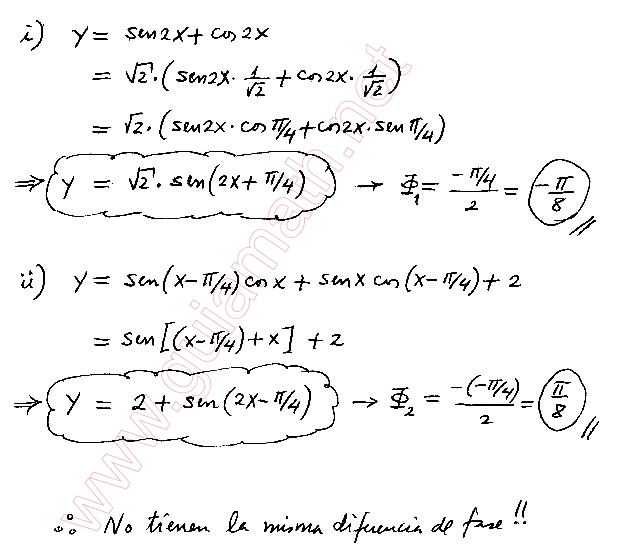 i) Y = sen2x + cos2x
= √2·(sen2x·1/√2 + cos2x·1/√2)
= √2·(sen2x·cosπ/4 + cos2x·senπ/4)
⇒ Y = √2·sen(2x + π/4) → Φ₁ = -π/4 / 2 = -π/8 //
ii) Y = sen(x - π/4)cosx + senx cos(x - π/4) + 2
= sen[(x - π/4) + x] + 2
⇒ Y = 2 + sen(2x - π/4) → Φ₂ = -(-π/4) / 2 = π/8 //
∴ No tienen la misma diferencia de fase!!
www.guiamath.net